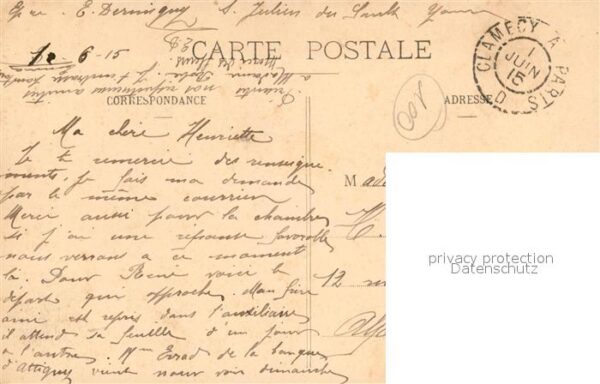 E. Derminguy St Julien du Sault Yonne
1e 6-15
CARTE POSTALE
CLAMECY A PARIS
1
JUIN
15
D
CORRESPONDANCE
ADRESSE
Ma chère Henriette
Je te remercie des renseigne
ments. Je fais ma demande
par le même courrier
Merci aussi pour la chambre
si j'ai une réponse favorable
nous verrons à ce moment
là. Pour René voici le
départ qui approche. Mon frère
ami est repris dans l'auxiliaire
il attend sa feuille d'un jour
à l'autre. Mme Evrad de la banque
d'Attigny vient nous voir dimanche
Made
12
privacy protection
Datenschutz